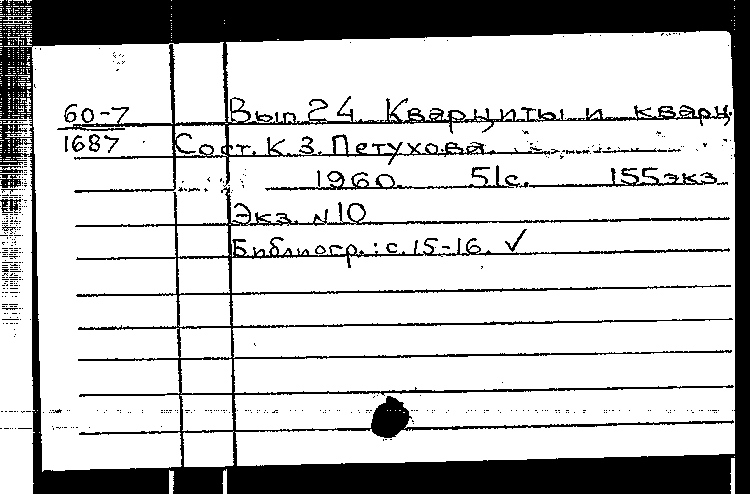 60-7 Вып. 24. Кварциты и кварц
1687 Сост. К.З. Петухова.
1960. 51с. 155экз
Экз. N10
Библиогр.: с. 15-16. ✓